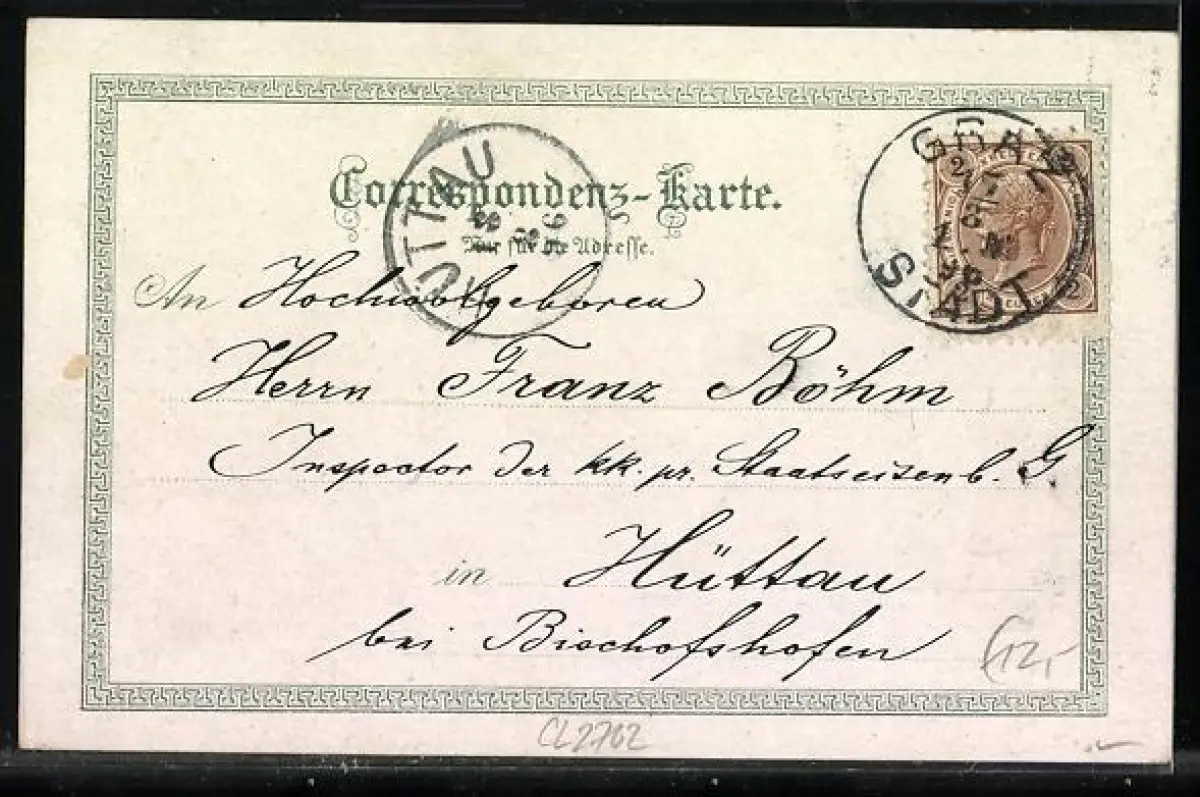 Correspondenz-Karte.
Nur für die Adresse.
GRAZ
STADT
98
2
2
ÜTTAU
98
An Hochwolgeboren
Herrn Franz Böhm
Inspector der kk. pr. Staatseisenb. G.
in Hüttau
bei Bischofshofen
12,-
CL2762